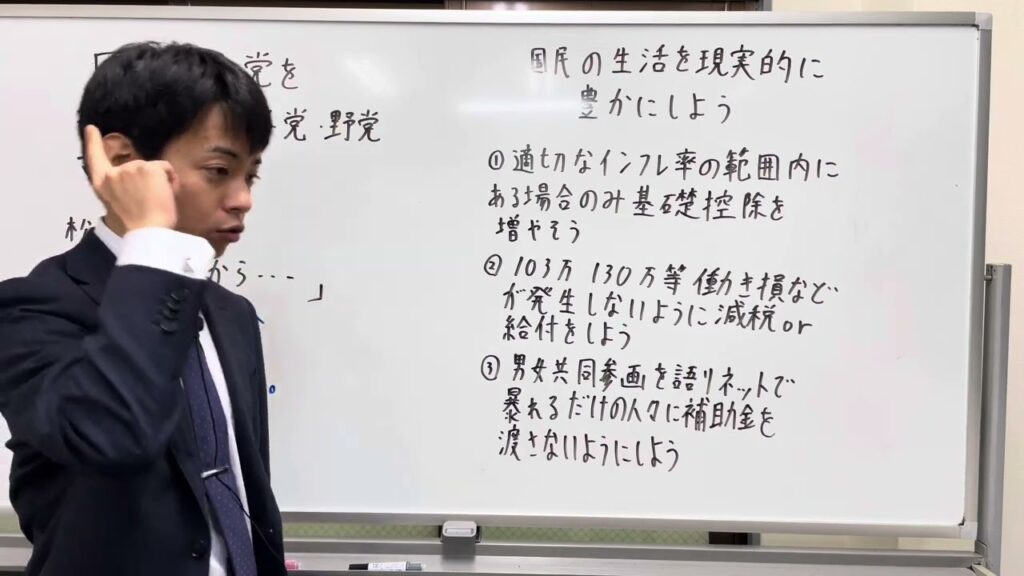 党を
党・野党
から…
」
国民の生活を現実的に
豊かにしよう
①適切なインフレ率の範囲内に
ある場合のみ基礎控除を
増やそう
② 103万 130万等 働き損など
が発生しないように減税or
給付をしよう
③ 男女共同参画を語りネットで
暴れるだけの人々に補助金を
渡さないようにしよう